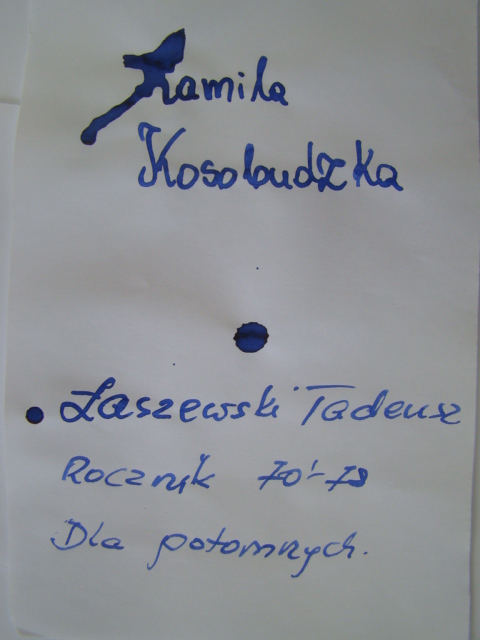 Kamila
Kosobudzka
Łaszewski Tadeusz
Rocznik 70'-78
Dla potomnych.